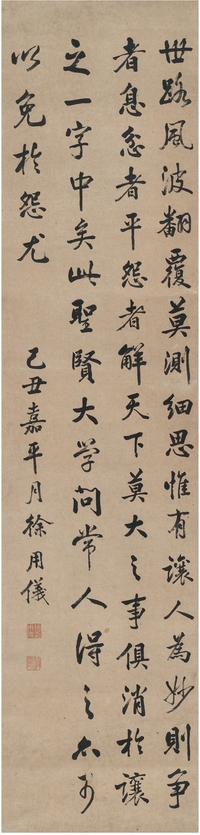 世路風波翻覆莫測細思惟有讓人為妙則争
者息忿者平怨者解天下莫大之事俱消於讓
之一字中矣此聖賢大学問常人得之亦可
以免於怨尤
己丑嘉平月徐用儀